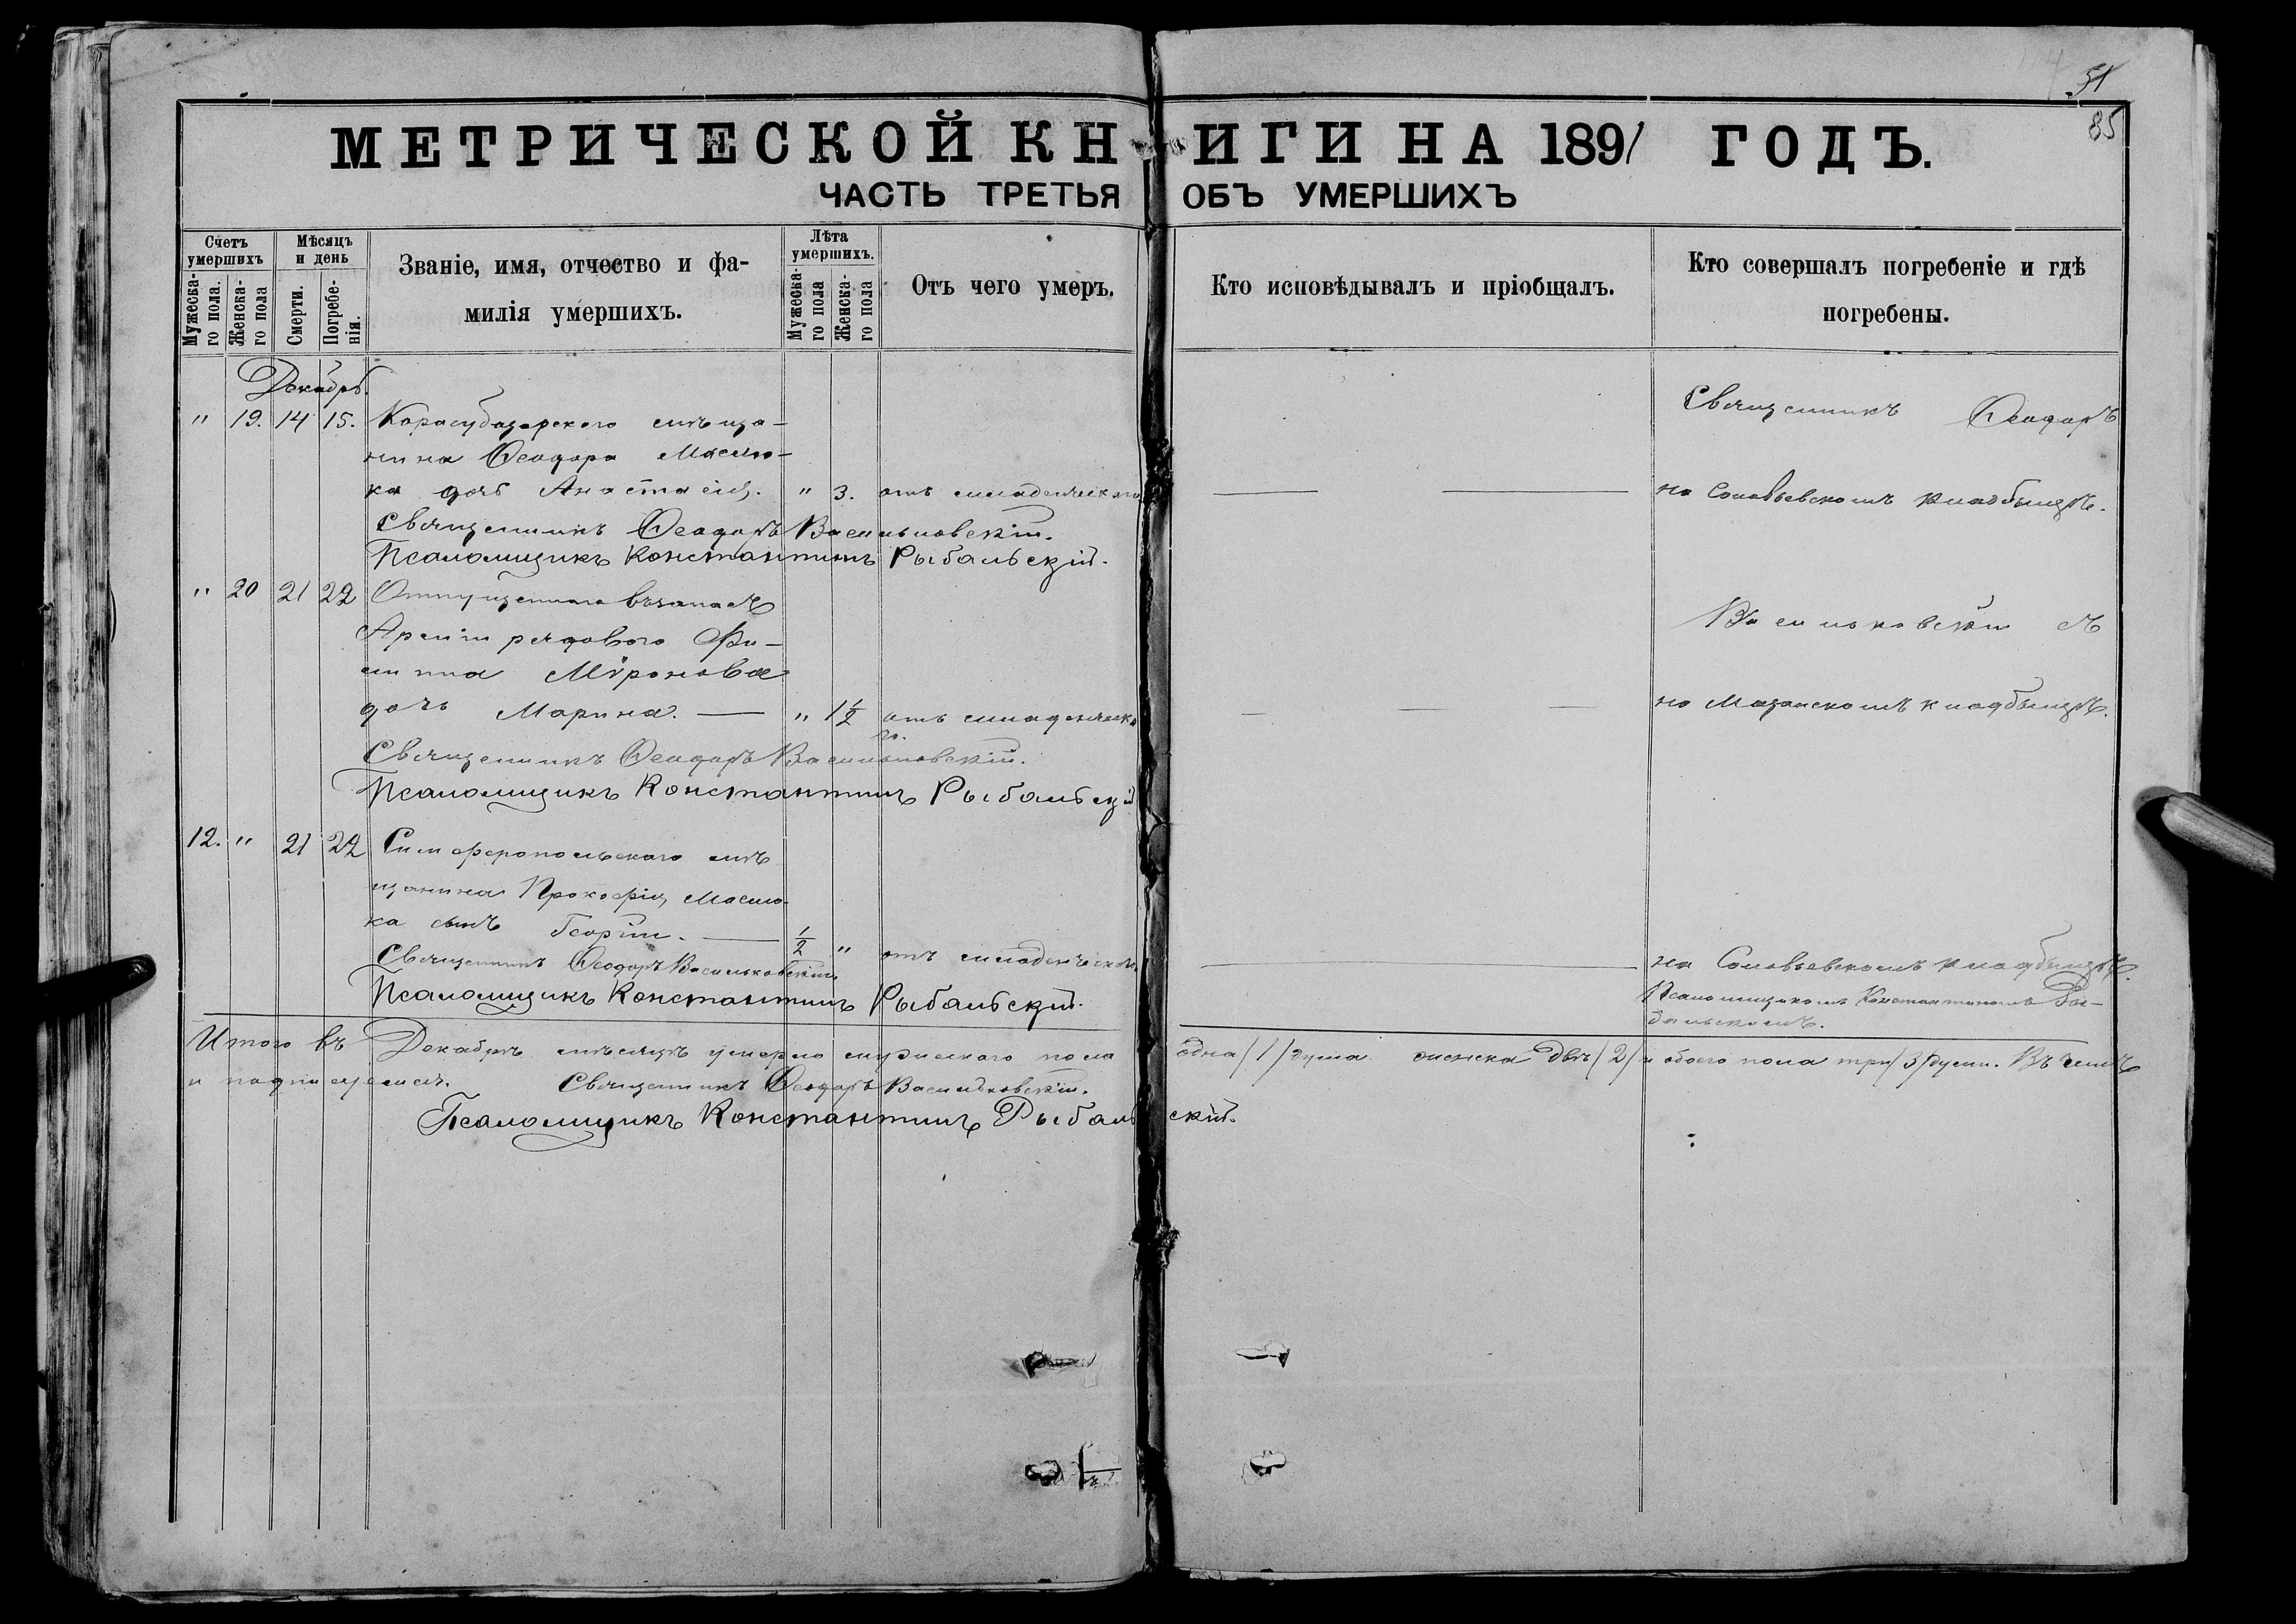 51
85
МЕТРИЧЕСКОЙ КНИГИ НА 1891 ГОДЪ.
ЧАСТЬ ТРЕТЬЯ ОБЪ УМЕРШИХЪ
Счетъ умершихъ
Мужеска-го пола.
Женска-го пола
Мѣсяцъ и день
Смерти.
Погребе-нія.
Званіе, имя, отчество и фа-
милія умершихъ.
Лѣта умершихъ.
Мужеска-го пола
Женска-го пола
Отъ чего умеръ.
Кто исповѣдывалъ и пріобщалъ.
Кто совершалъ погребеніе и гдѣ
погребены.
Декабрь.
" 19. 14 15. Карасубазарскаго мѣща- Священникъ Ѳеодоръ
нина Ѳеодора Маслю-
ка дочь Анастасія. " 3. отъ младенческаго на Соловьевскомъ кладбищѣ.
Священникъ Ѳеодоръ Васильковскій.
Псаломщикъ Константинъ Рыбальскій.
" 20 21 22 Отпущеннаго въ запасъ
Арміи рядового Фи- Васильковскій съ
липпа Мѵронова
дочь Марина. — " 1½ отъ младенческа на Мазанскомъ кладбищѣ.
го.
Священникъ Ѳеодоръ Васильковскій.
Псаломщикъ Константинъ Рыбальскій
12. " 21 22 Симферопольскаго мѣ
щанина Прокофія Маслю-
ка сынъ Георгій. — ½ " отъ младенческаго на Соловьевскомъ кладбищѣ.
Священникъ Ѳеодоръ Васильковскій
Псаломщикомъ Константиномъ Ры-
Псаломщикъ Константинъ Рыбальскій.
бальскимъ.
Итого въ Декабрѣ мѣсяцѣ умерло мужескаго пола одна /1/ душа женска двѣ /2/ и обоего пола три /3/ души. Въ чемъ
и подписуемся. Священникъ Ѳеодоръ Васильковскій.
Псаломщикъ Константинъ Рыбальскій.